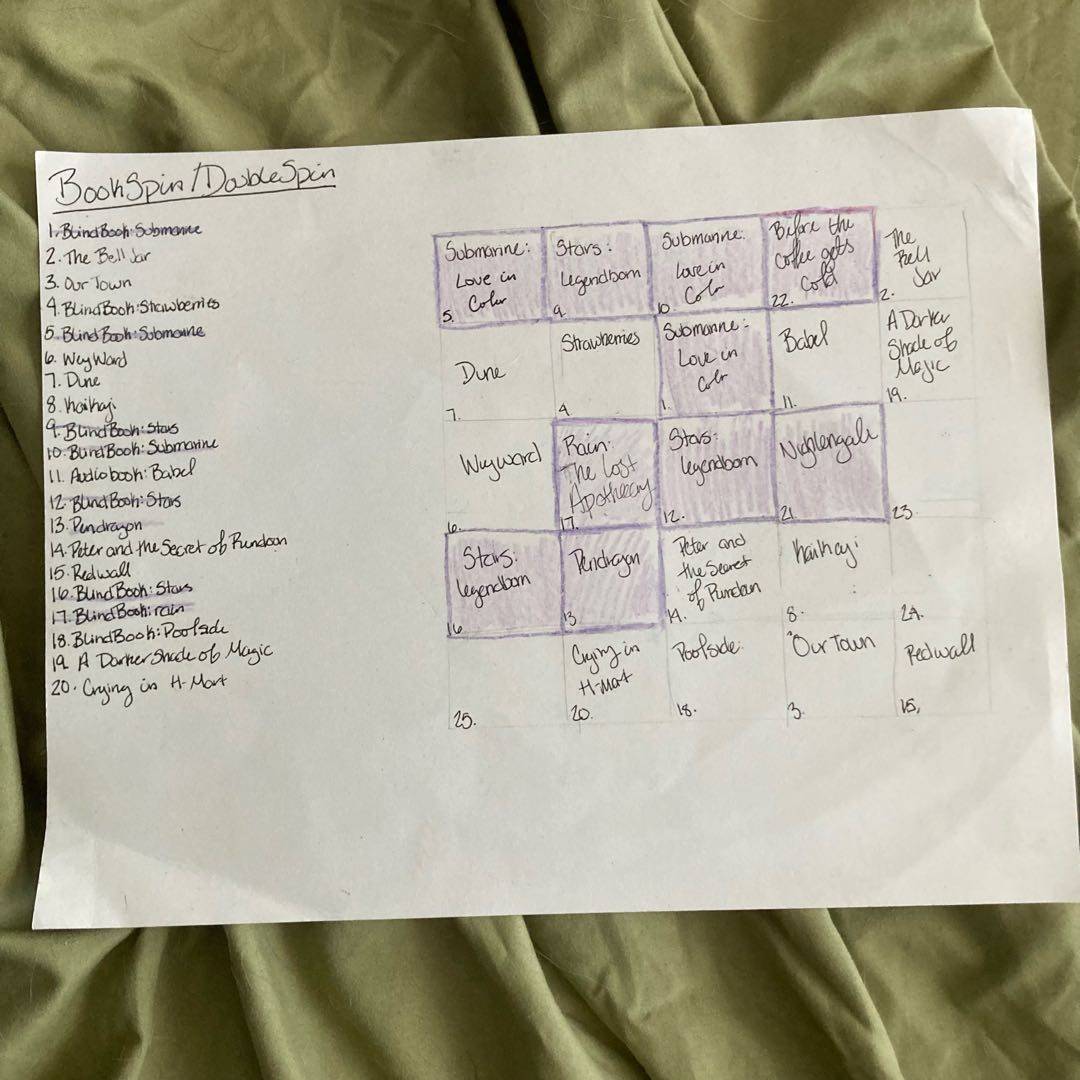 BookSpin/DoubleSpin
1. BlindBook: Submarine
2. The Bell Jar
3. Our Town
4. BlindBook: Strawberries
5. BlindBook: Submarine
6. WeyWard
7. Dune
8. Kaikeyi
9. BlindBook: Stars
10. BlindBook: Submarine
11. Audiobook: Babel
12. BlindBook: Stars
13. Pendragon
14. Peter and the Secret of Rundoon
15. Redwall
16. BlindBook: Stars
17. BlindBook: rain
18. BlindBook: Poolside
19. A Darker Shade of Magic
20. Crying in H-Mart
Submarine:
Love in
Color
5.
Stars:
Legendborn
9.
Submarine:
Love in
Color
10.
Before the
Coffee gets
Cold
22.
The
Bell
Jar
2.
Dune
7.
Strawberries
4.
Submarine:
Love in
Color
1.
Babel
11.
A Darker
Shade of
Magic
19.
Weyward
6.
Rain:
The Lost
Apothecary
17.
Stars:
Legendborn
12.
Nightengale
21.
23.
Stars:
Legendborn
16
Pendragon
13
Peter and
the Secret
of Rundoon
14.
Kaikeyi
8.
24.
25.
Crying in
H-Mart
20.
Poolside:
18.
Our Town
3.
Redwall
15.